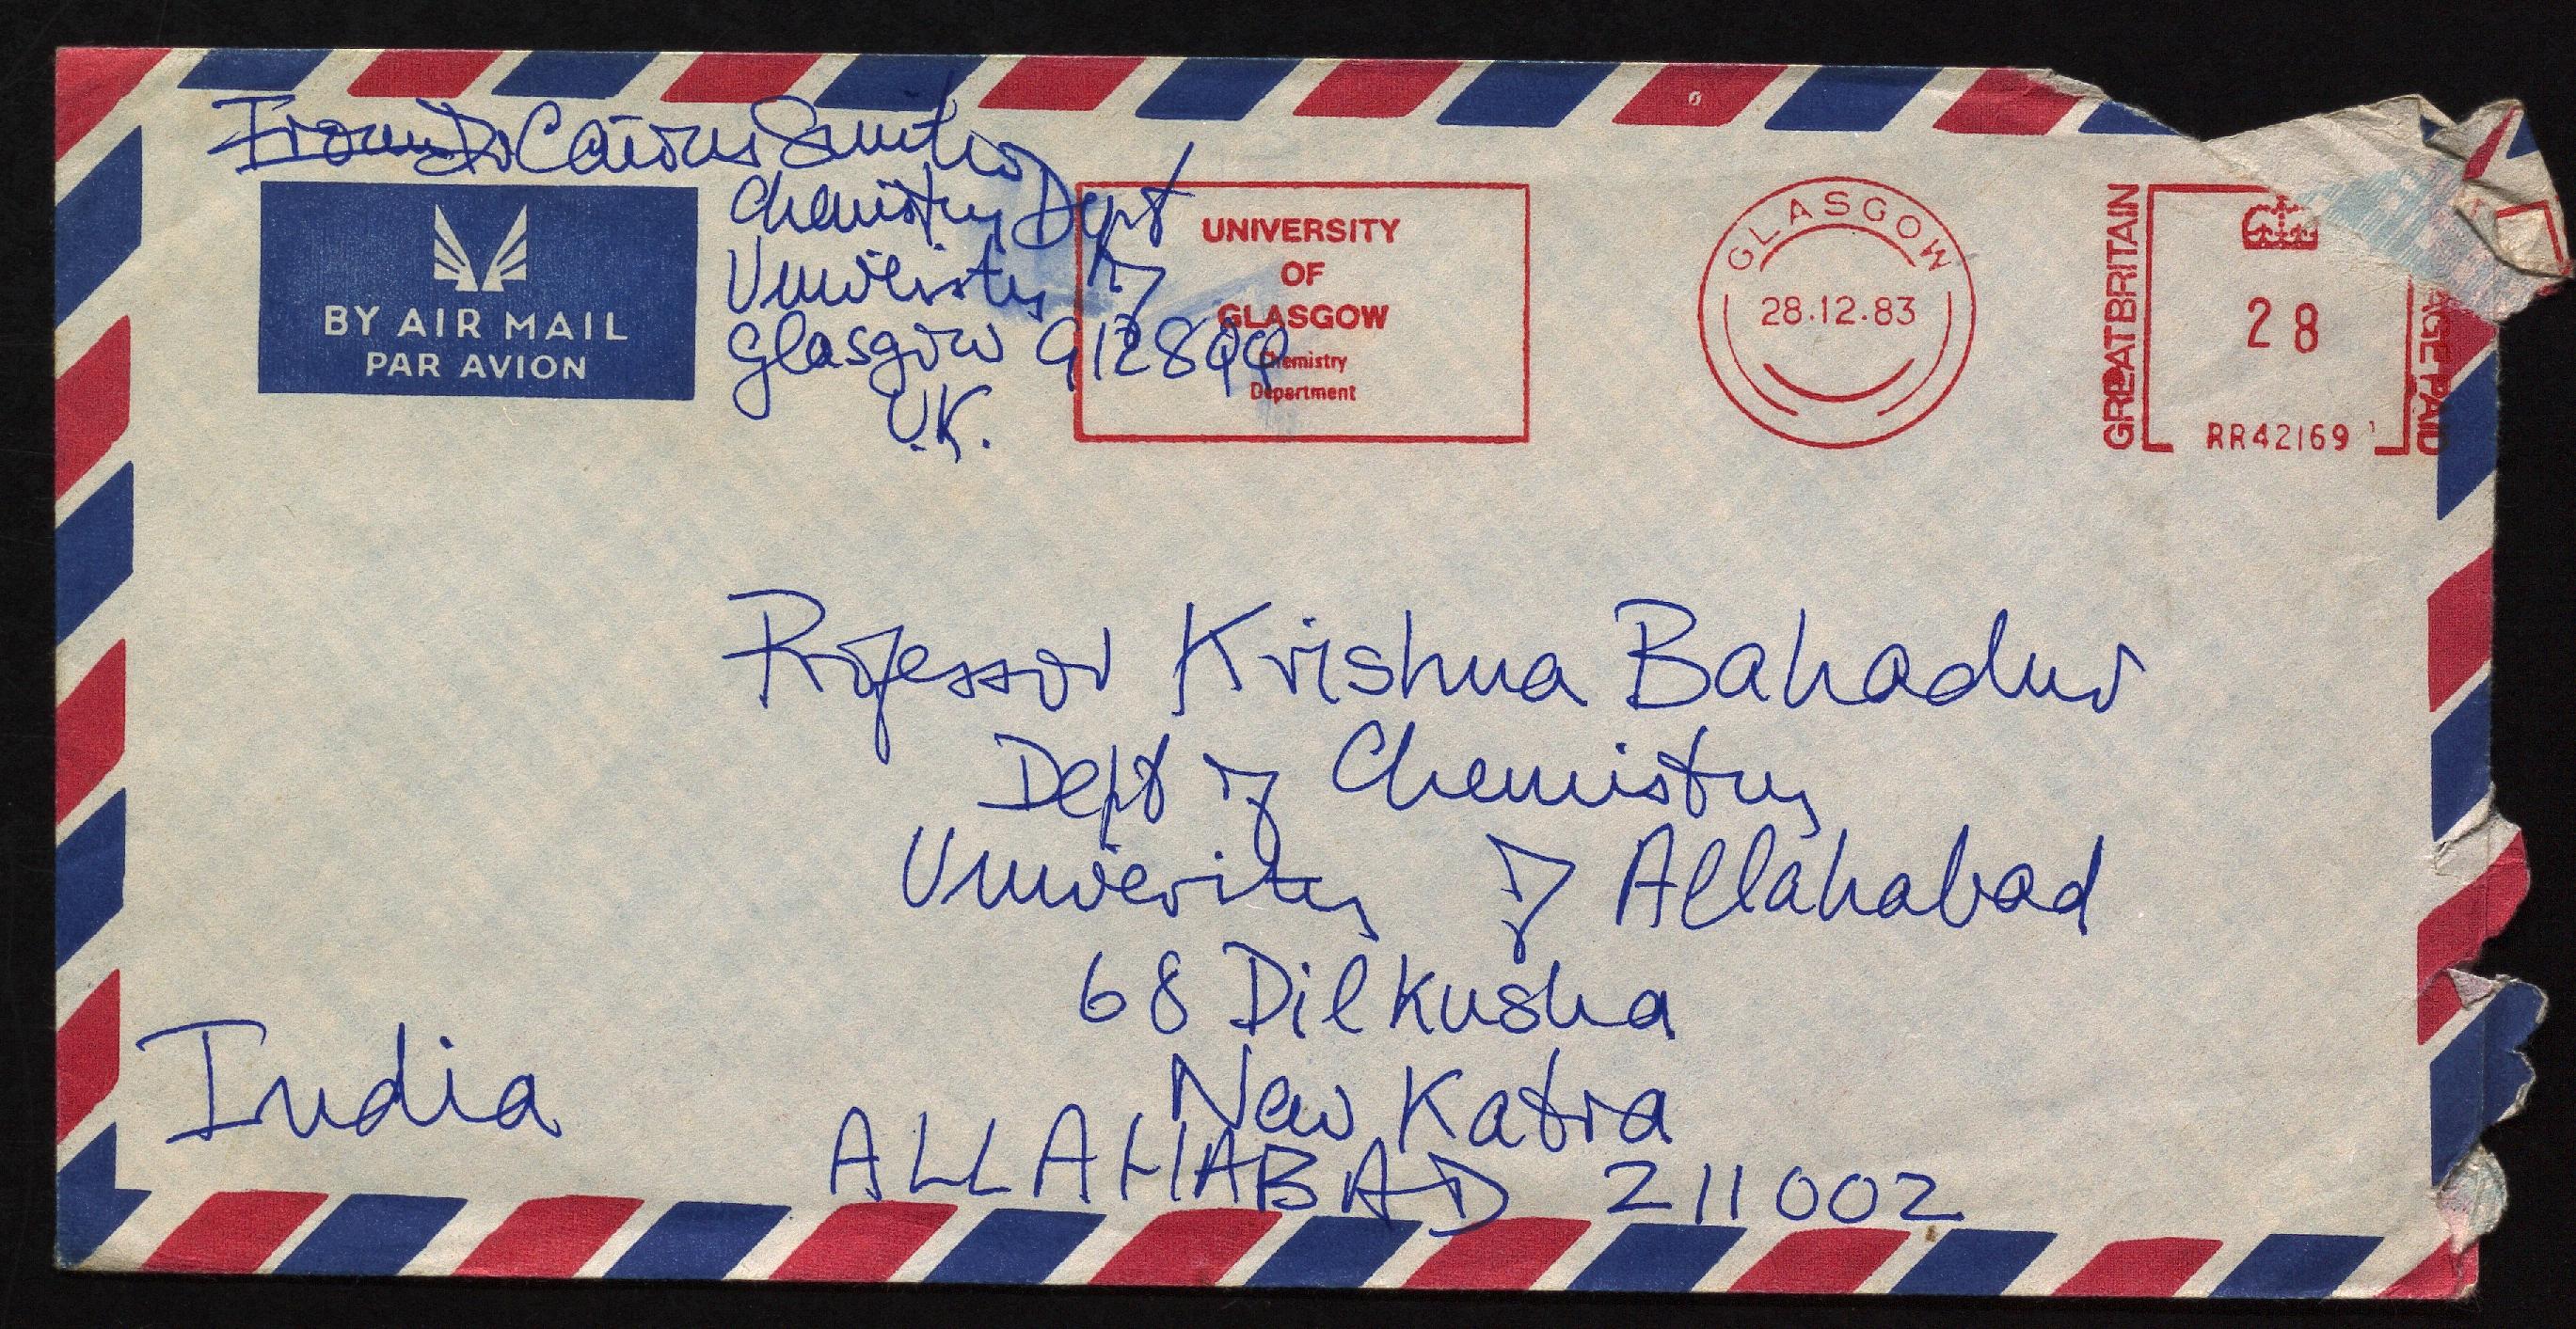 From Dr Cairns Smith
Chemistry Dept
University of
Glasgow G12 8QQ
U.K.
BY AIR MAIL
PAR AVION
UNIVERSITY
OF
GLASGOW
Chemistry
Department
GLASGOW
28.12.83
GREAT BRITAIN
28
RR42169
AGE PAID
Professor Krishna Bahadur
Dept of Chemistry
University of Allahabad
68 Dilkusha
New Katra
ALLAHABAD 211002
India